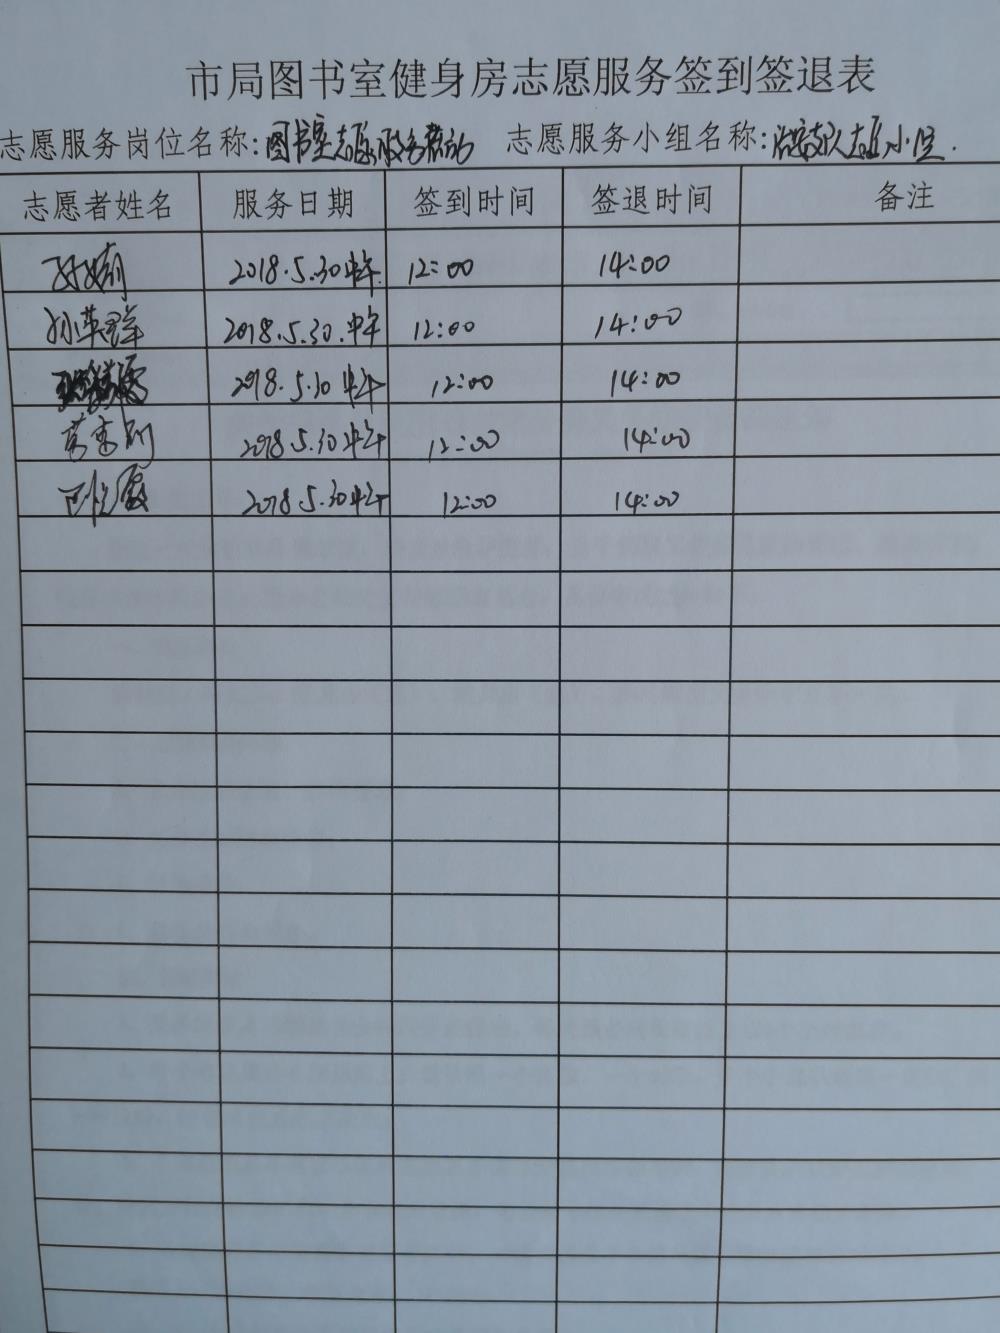 市局图书室健身房志愿服务签到签退表
志愿服务岗位名称:图书室志愿服务活动 志愿服务小组名称:治安支队志愿小组.
志愿者姓名 服务日期 签到时间 签退时间 备注
孙婧 2018.5.30中午. 12:00 14:00
孙英群 2018.5.30.中午 12:00 14:00
2018.5.30中午 12:00 14:00
2018.5.30中午 12:00 14:00
2018.5.30中午 12:00 14:00